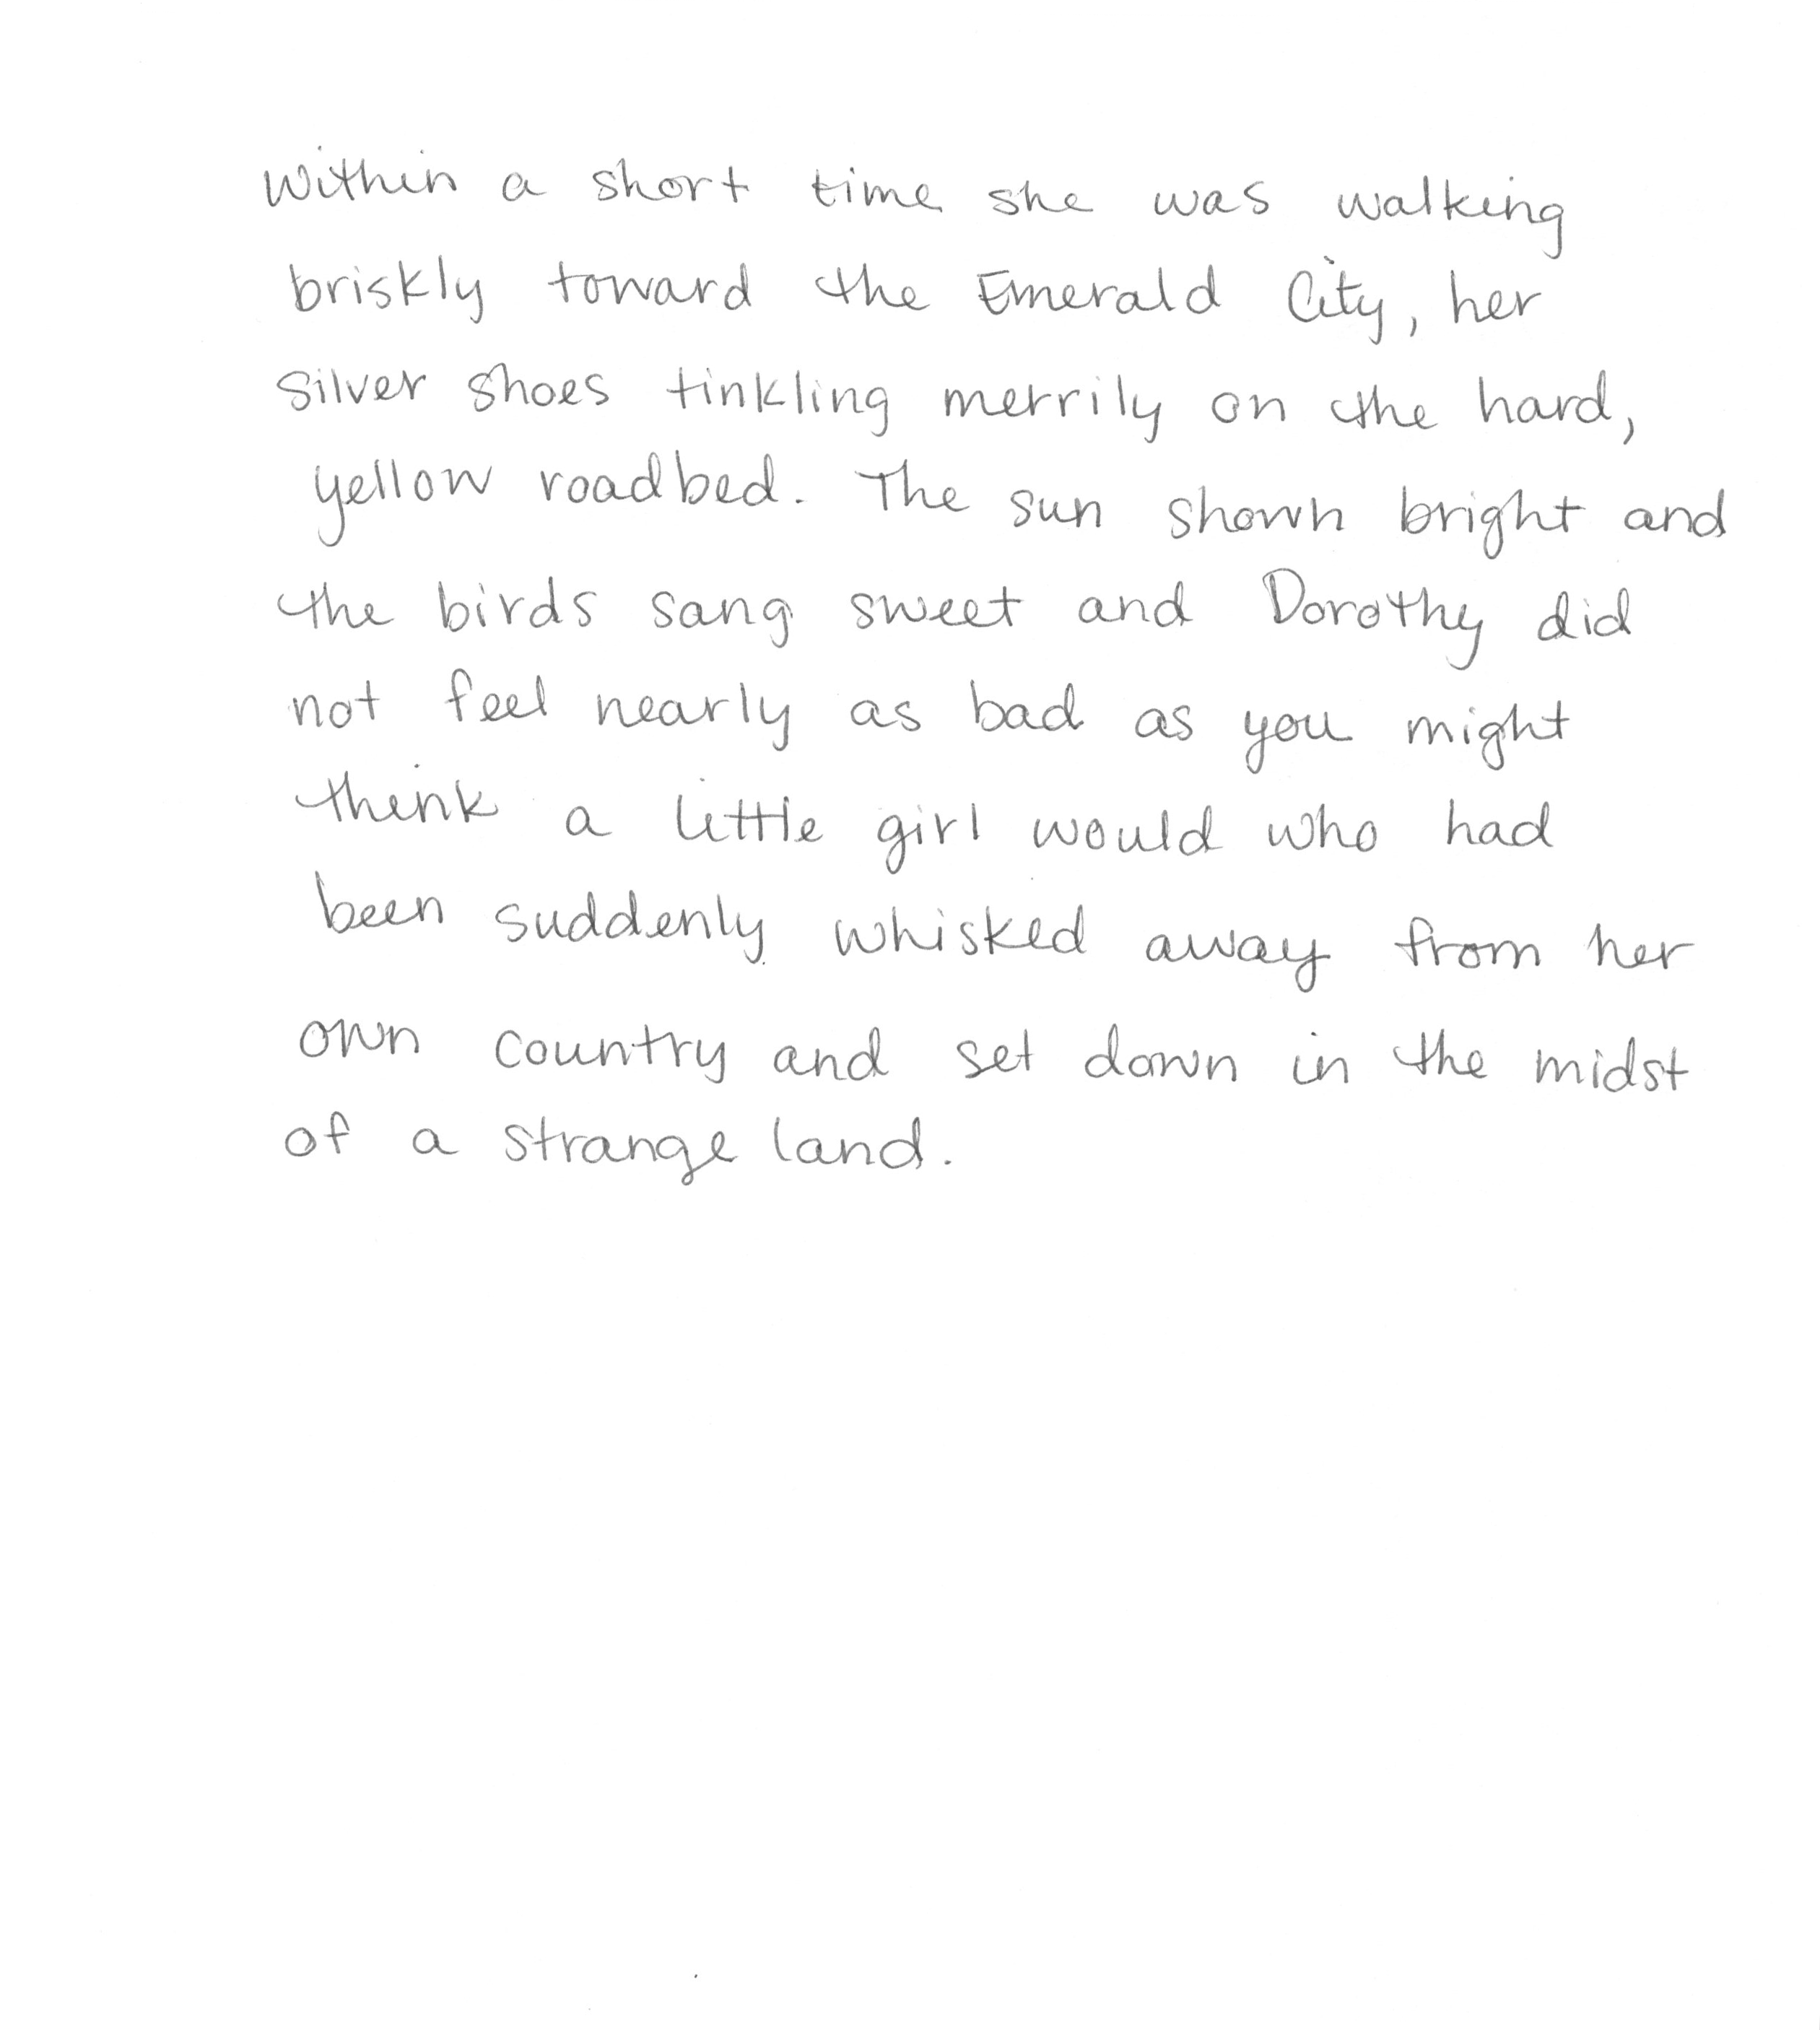 Within a short time she was walking
briskly toward the Emerald City, her
silver shoes tinkling merrily on the hard,
yellow roadbed. The sun shown bright and
the birds sang sweet and Dorothy did
not feel nearly as bad as you might
think a little girl would who had
been suddenly whisked away from her
own country and set down in the midst
of a strange land.